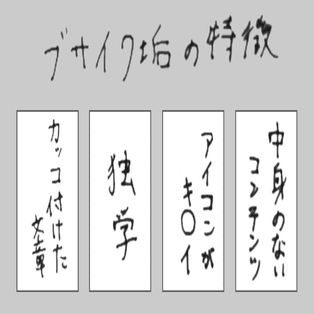 ブサイク垢の特徴
中身のない
コンテンツ
アイコンが
キ〇イ
独学
カッコ付けた
文章